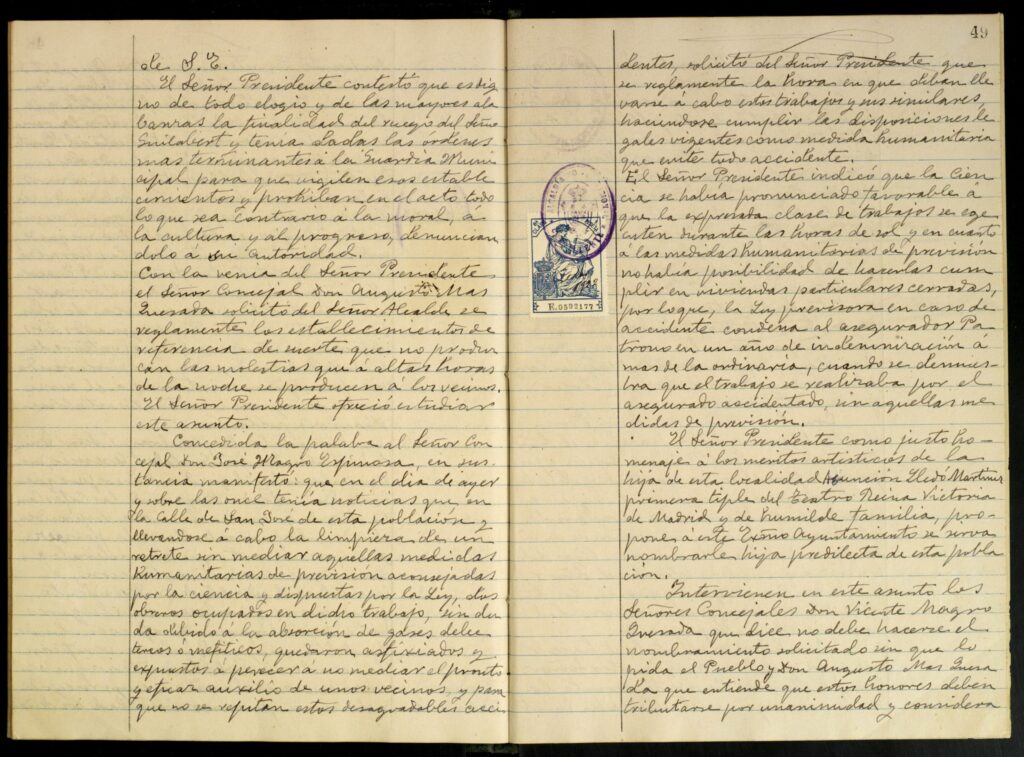 de S. E.
El Señor Presidente contestó que es dig
no de todo elogio y de las mayores ala
banzas la finalidad del ruego del Señor
Guilabert y tenía dadas las órdenes
mas terminantes á la Guardia Muni
cipal para que vigilen esos estable
cimientos y prohiban en el acto todo
lo que sea contrario á la moral, á
la cultura y al progreso, denuncian
dolo á su autoridad.
Con la venia del Señor Presidente
el Señor Concejal Don Augusto Mas
Quesada solicitó del Señor Alcalde se
reglamente los establecimientos de
referencia de suerte que no produz
can las molestias que á altas horas
de la noche se producen á los vecinos.
El Señor Presidente ofreció estudiar
este asunto.
Concedida la palaba al Señor Con
cejal Don José Magro Espinosa, en sus
tancia manifestó: que en el día de ayer
y sobre las once tenía noticias que en
la Calle de San José de esta población y
llevandose á cabo la limpieza de un
retrete sin mediar aquellas medidas
humanitarias de previsión aconsejadas
por la ciencia y dispuestas por la Ley, dos
obreros ocupados en dicho trabajo, sin du
da debido á la absorción de gases dele
tereos ó mefíticos, quedaron asfixiados y
expuestos á perecer á no mediar el pronto
y eficaz auxilio de unos vecinos, y para
que no se repitan estos desagradables acci
49
dentes, solicitó del Señor Presidente que
se reglamente la hora en que deban lle
varse á cabo estos trabajos y sus similares,
haciendose cumplir las disposiciones le
gales vigentes como medida humanitaria
que evite todo accidente.
El Señor Presidente indicó que la Cien
cia se había pronunciado favorable á
que la expresada clase de trabajos se eje
cuten durante las horas de sol y en cuanto
á las medidas humanitarias de previsión
no había posibilidad de hacerlas cum
plir en viviendas particulares cerradas,
por lo que, la Ley previsora en caso de
accidente condena al asegurador Pa
trono en un año de indemnización á
mas de la ordinaria, cuando se demues-
tra que el trabajo se realizaba por el
asegurado accidentado, sin aquellas me
didas de previsión.
El Señor Presidente como justo ho-
menaje á los meritos artisticos de la
hija de esta localidad Asunción Lledó Martinez
primera tiple del Teatro Reina Victoria
de Madrid y de humilde familia, pro-
pone á este Excmo Ayuntamiento se sirva
nombrarle hija predilecta de esta pobla
ción.
Intervienen en este asunto los
Señores Concejales Don Vicente Magro
Quesada que dice no debe hacerse el
nombramiento solicitado sin que lo
pida el Pueblo y Don Augusto Mas Quesa
da que entiende que estos honores deben
tributarse por unanimidad y considera
E.0592177